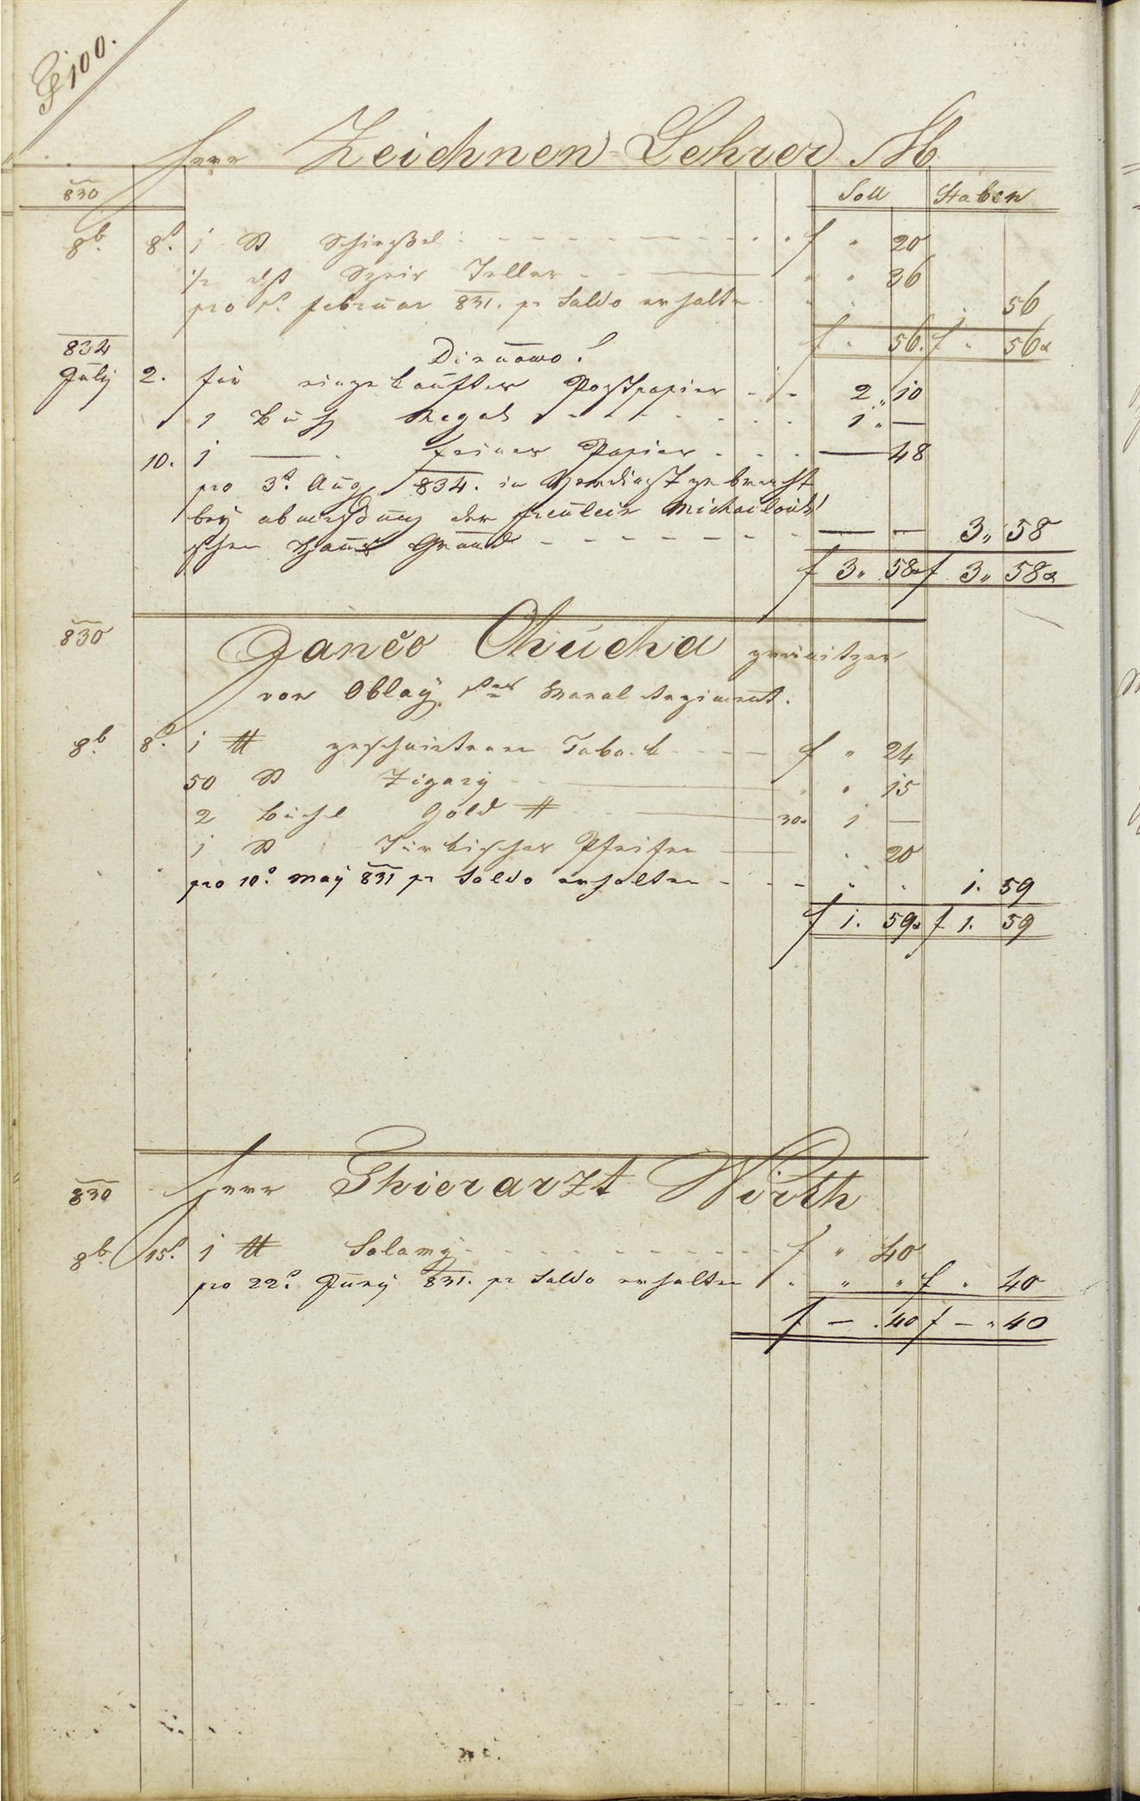 100.
Herr Zeichnen Lehrer M
830 Soll Haben
8b 8. 1 St Schießel f " 20
1/2 Teller " " 36
pro februar 831. pr Saldo erhalten 56
f " 56. f " 56
834
July 2. für eingekauftes Postpapier 2 " 10
1 Buch Regal 1 " —
10. 1 — feines Papier — 48
pro 3t. Aug 834. in gebracht
bey der
Haus Grund — — 3 " 58
f 3 " 58 f 3 " 58
830
Jančo Chucha
von Oblay Regiment.
8b 8. 1 ℔ geschnittenen Taback f " 24
50 St Zigary " " 15
2 Büchl Gold 30 1 —
1 St Türkischer Pfeifen " 20
pro 10. May 831 pr Saldo erhalten 1. 59
f 1. 59 f 1. 59
830 Herr Thierarzt Wirth
8b 15. 1 ℔ Salamy f " 40
pro 22. Juny 831. pr Saldo erhalten " " f " 40
f — . 40 f — . 40